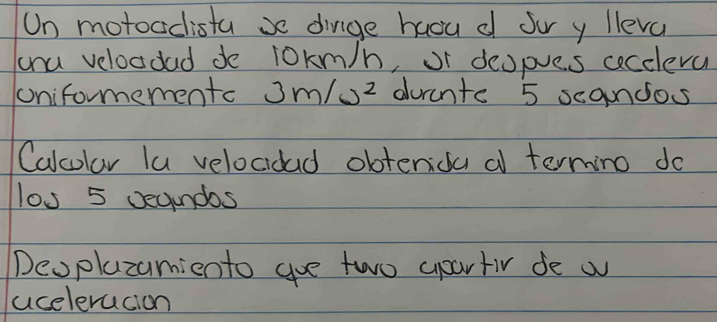 Un motociclista se dirige hacia el Sur y lleva
una velocidad de 10km/h, si despues acelera
uniformemente 3m/s² durante 5 segundos
Calcular la velocidad obtenida al termino de
los 5 segundos
Desplazamiento que tuvo apartir de su
aceleracion